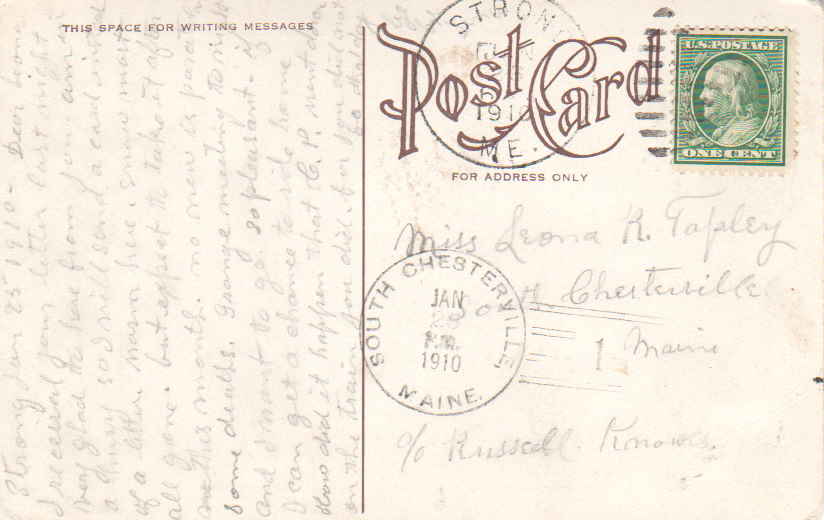 THIS SPACE FOR WRITING MESSAGES
Post Card
FOR ADDRESS ONLY
STRONG
1910
ME.
U.S. POSTAGE
ONE CENT
Miss Leona R. Tapley
South Chesterville
Maine
c/o Russell Knowles.
SOUTH CHESTERVILLE
JAN
P.M.
1910
MAINE.
Strong Jan 25 1910 - Dear Leona
I received your letter last night
very glad to hear from am in
a hurry so I will send a card instead
of a letter warm here snow most
all gone. but expect to take it after
this month. no new is
some deaths. Grange meeting to
and I want to go so pleasant if
I can get a chance to ride home
How did it happen that C. P. went
on the train you did. or you did